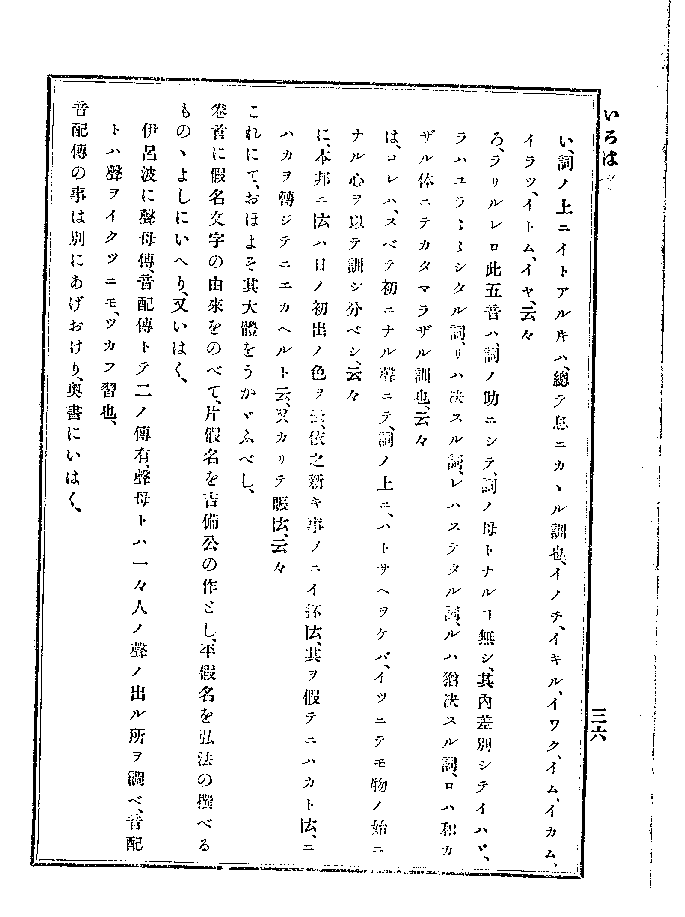 いろは
三六
い、詞ノ上ニイトアル片ハ、總テ息ニカヽル訓也、イノチ、イキル、イワク、イム、イカム、
イラツ、イトム、イヤ、云々
ろ、ラリルレロ此五音ハ、詞ノ助ニシテ、詞ノ母トナルヿ無シ、其內差別シテイハヾ、
ラハユラ〳〵シタル詞、リハ決スル詞、レハステタル詞、ルハ猶決スル詞、ロハ和カ
ザル体ニテカタマラザル訓也、云々
は、コレハ、スベテ初ニナル聲ニテ、詞ノ上ニ、ハトサヘヲケバ、イツニテモ物ノ始ニ
ナル心ヲ以テ訓シ分ベシ、云々
に、本邦ニ㐪ハ日ノ初出ノ色ヲ云、依之新キ事ノニイ抔㐪、其ヲ假テニハカト㐪、ニ
ハカヲ轉ジテニエカヘルト云、又カリテ賑㐪、云々
これにて、おほよそ其大體をうかゞふべし、
卷首に假名文字の由來をのべて、片假名を吉備公の作とし、平假名を弘法の撰べる
ものゝよしにいへり、又いはく、
伊呂波に聲母傳、音配傳トテ二ノ傳有、聲母トハ一々人ノ聲ノ出ル所ヲ調ベ、音配
トハ聲ヲイクツニモ、ツカフ習也、
音配傳の事は別にあげおけり、奧書にいはく、